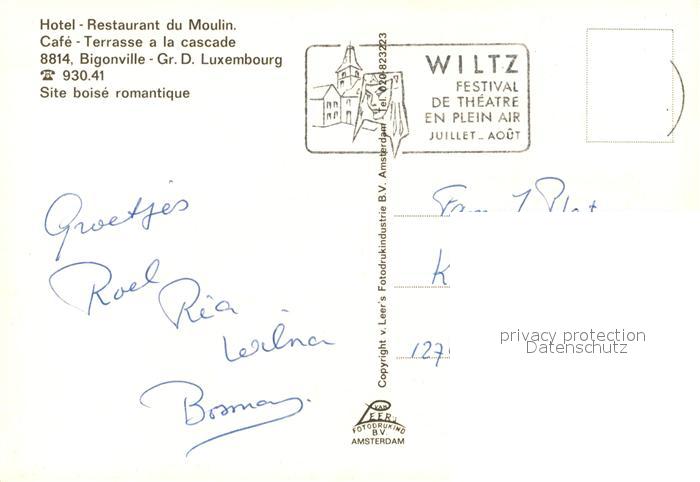 Hotel - Restaurant du Moulin.
Café - Terrasse a la cascade
8814, Bigonville - Gr. D. Luxembourg
☎ 930.41
Site boisé romantique
WILTZ
FESTIVAL
DE THÉATRE
EN PLEIN AIR
JUILLET _ AOÛT
Copyright v. Leer's Fotodrukindustrie B.V. Amsterdam Tel. 020-823223
Groetjes
Roel
Ria
Wilna
Bosman
Fam
K
127
privacy protection
Datenschutz
VAN
LEER'S
FOTODRUKIND
B.V.
AMSTERDAM